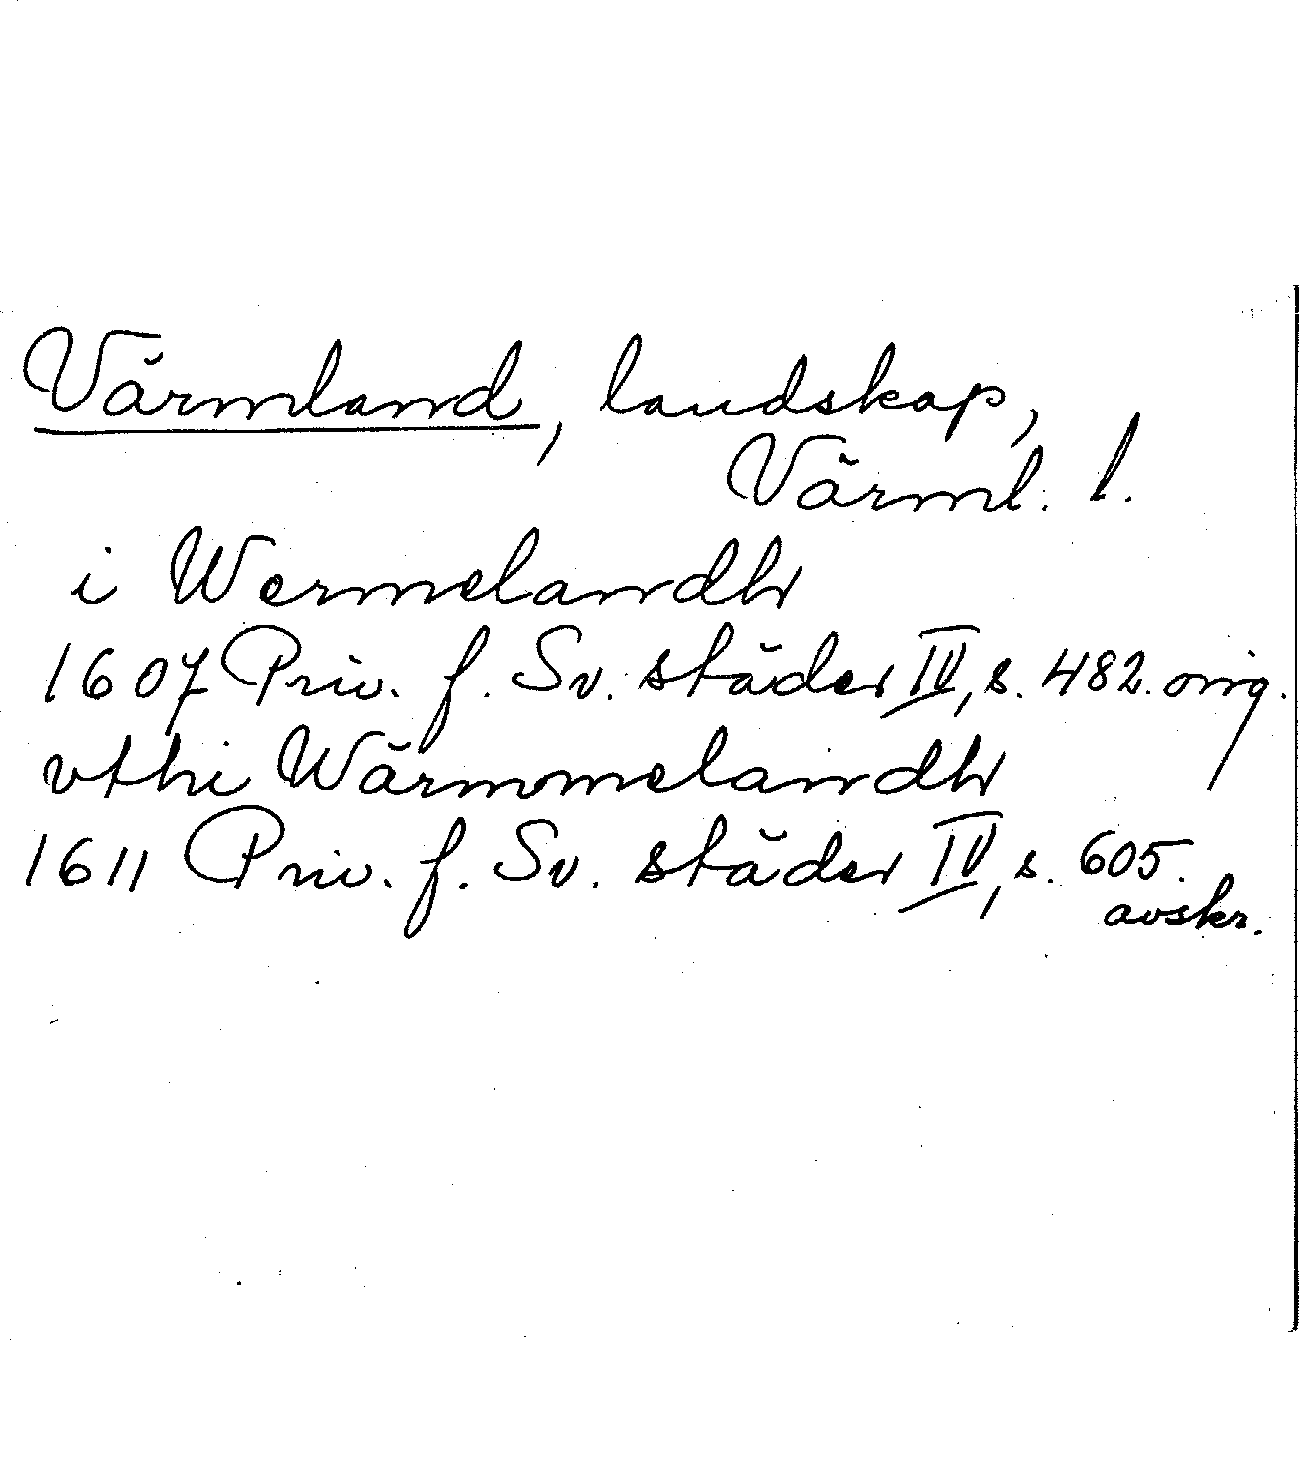 Värmland, landskap,
Värml. l.
i Wermelandh
1607 Priv. f. Sv. städer IV, s. 482. orig.
vthi Wärmomelandh
1611 Priv. f. Sv. städer IV, s. 605.
avskr.